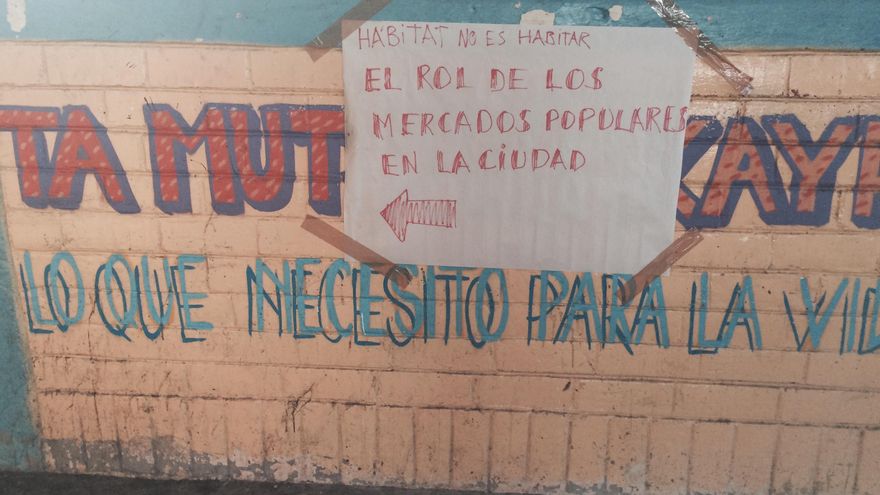 HABITAT NO ES HABITAR
EL ROL DE LOS
MERCADOS POPULARES
EN LA CIUDAD
TA MUT KAY
LO QUE NECESITO PARA LA VID